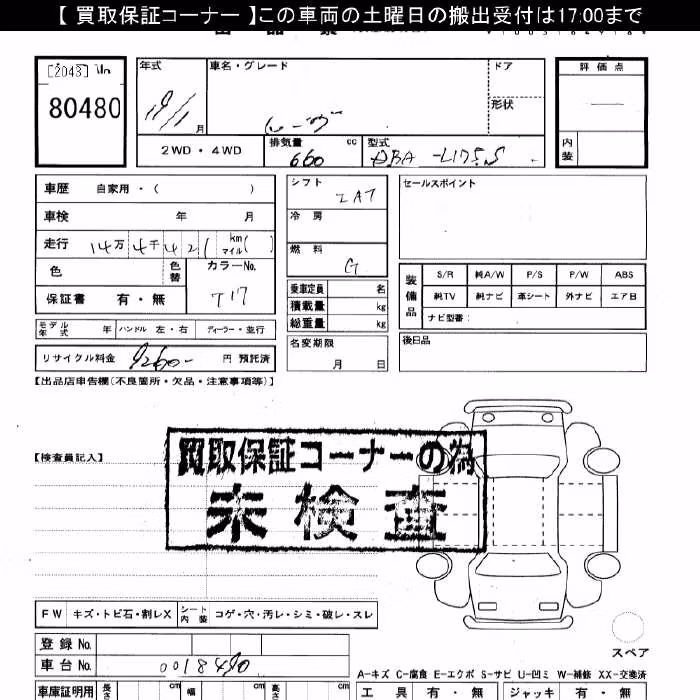 【 買取保証コーナー 】この車両の土曜日の搬出受付は17:00まで
[2043]
80480
年式
車名・グレード
ドア
形状
評価点
月
2WD・4WD
排気量 cc
660
型式
DBA-L175S
内装
車歴 自家用・( )
シフト
IAT
セールスポイント
車検 年 月
冷房
走行 14万4千421 km マイル( )
燃料
G
色
色替
カラーNo.
T17
装備品
S/R 純A/W P/S P/W ABS
純TV 純ナビ 革シート 外ナビ エアB
ナビ型番:
保証書 有・無
乗車定員 名
積載量 kg
総重量 kg
モデル年式 年 ハンドル 左・右 ディーラー・並行
名変期限
月 日
後日品
リサイクル料金 9260- 円 預託済
【出品店申告欄(不良箇所・欠品・注意事項等)】
買取保証コーナーの為
未検査
【検査員記入】
FW キズ・トビ石・割レX シート内装 コゲ・穴・汚レ・シミ・破レ・スレ
登録No.
車台No. 0018490
スペア
A-キズ C-腐食 E-エクボ S-サビ U-凹ミ W-補修 XX-交換済
車庫証明用 長さ cm 幅 cm 高さ cm
工具 有・無 ジャッキ 有・無